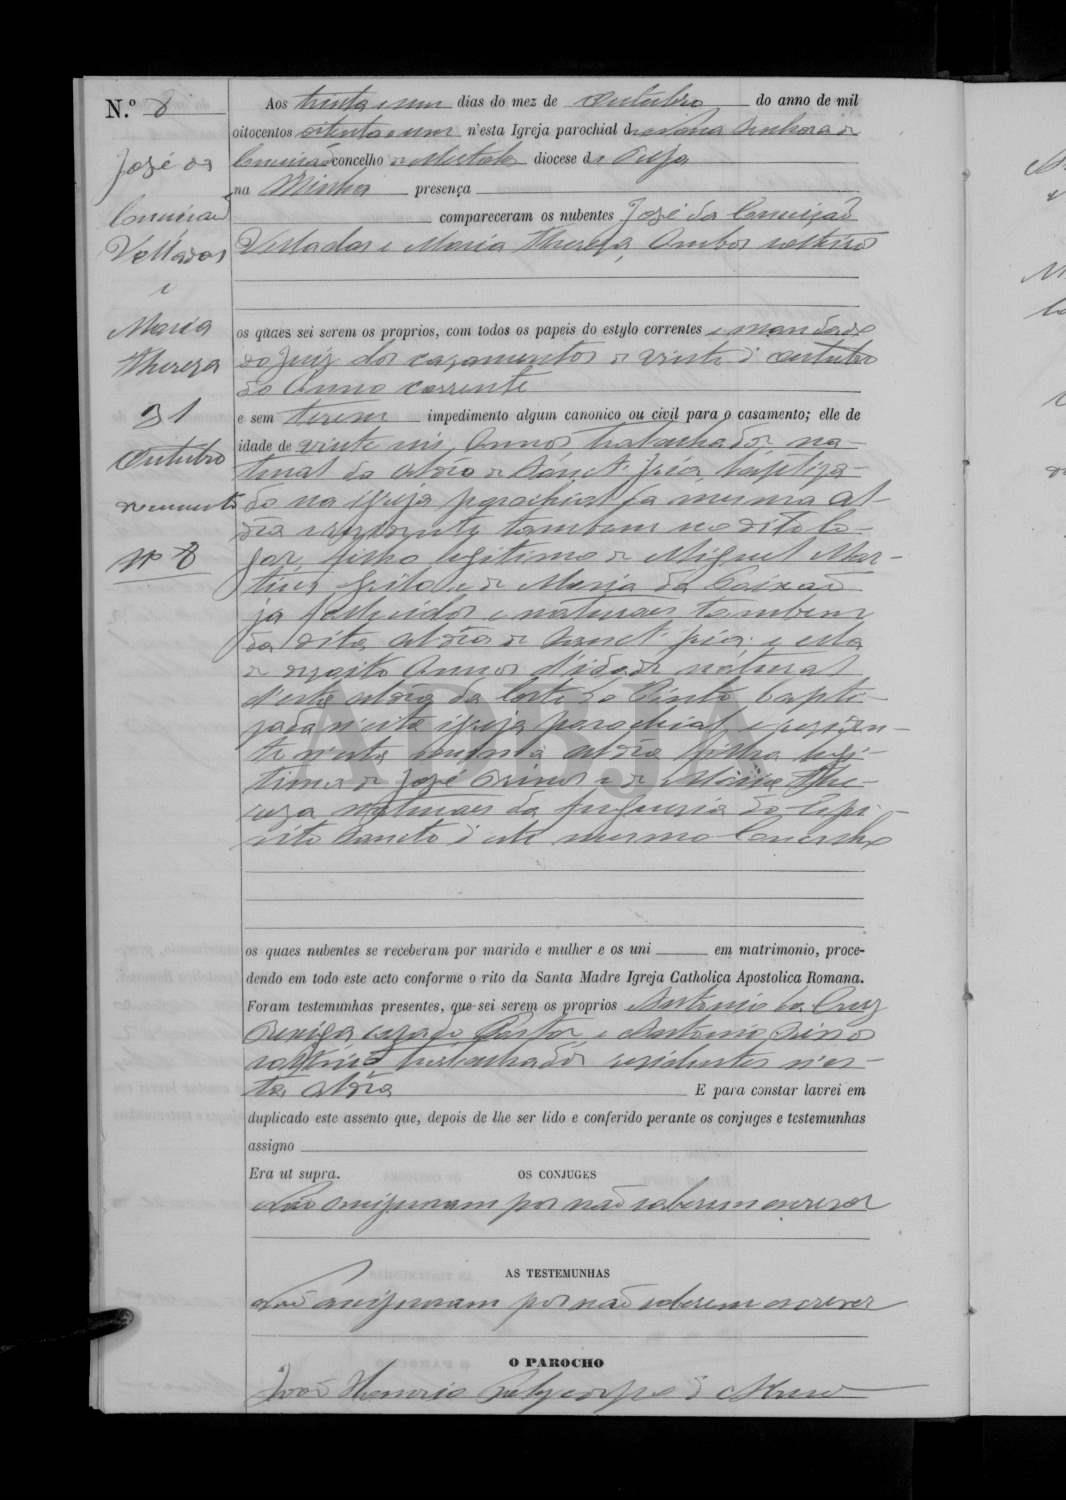 N.º 8
José da
Conceição
Vellados
e
Maria
Thereza
31
Outubro
Nº 8
Aos trinta e um dias do mez de Outubro do anno de mil
oitocentos oitenta e um n'esta Igreja parochial de Nossa Senhora da
Conceição concelho de Mertola diocese de Beja
na Minha presença
compareceram os nubentes José da Conceição
Vellados e Maria Thereza, Ambos solteiros
os quaes sei serem os proprios, com todos os papeis do estylo correntes e mandado
do Juiz dos casamentos de vinte d'outubro
do Anno corrente
e sem terem impedimento algum canonico ou civil para o casamento; elle de
idade de vinte seis Annos trabalhador na-
tural da Aldeia de Sanct' Jria, baptiza-
do na igreja parochial da mesma Al-
deia e residente tambem no dito lo-
gar, filho legitimo de Miguel Mar-
tins Grilo e de Maria da Caixão
ja fallecidos e naturaes tambem
da dita Aldeia de Sanct' Jria; e ella
de dezoito Annos d'idade natural
d'esta Aldeia da Corte do Pinto bapti-
zada n'esta igreja parochial e residen-
te n'esta mesma aldeia filha legi-
tima de José Prinos e de Maria The-
reza naturaes da freguesia do Espi-
rito Sancto d'este mesmo Concelho
os quaes nubentes se receberam por marido e mulher e os uni em matrimonio, proce-
dendo em todo este acto conforme o rito da Santa Madre Igreja Catholica Apostolica Romana.
Foram testemunhas presentes, que sei serem os proprios Antonio da Cruz
casado Pastor, e Antonio
solteiro trabalhador residentes n'es-
ta Aldeia E para constar lavrei em
duplicado este assento que, depois de lhe ser lido e conferido perante os conjuges e testemunhas
assigno
Era ut supra. OS CONJUGES
Não assignaram por não saberem escrever
AS TESTEMUNHAS
Não assignaram por não saberem escrever
O PAROCHO
João Honorio Polycarpo
ADBJA